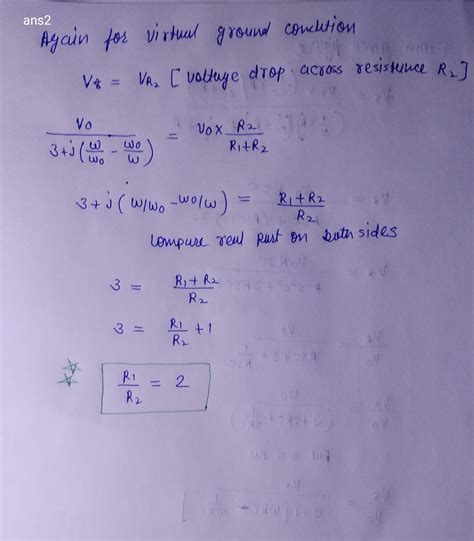 ans2
Again for virtual ground condition
V₈ = V_R₂ [ voltage drop across resistance R₂ ]
Vo / (3+j(ω/ω₀ - ω₀/ω)) = Vo x R₂ / (R₁+R₂)
3+j(ω/ω₀ - ω₀/ω) = (R₁+R₂) / R₂
compare real part on both sides
3 = (R₁+R₂) / R₂
3 = R₁/R₂ + 1
R₁/R₂ = 2